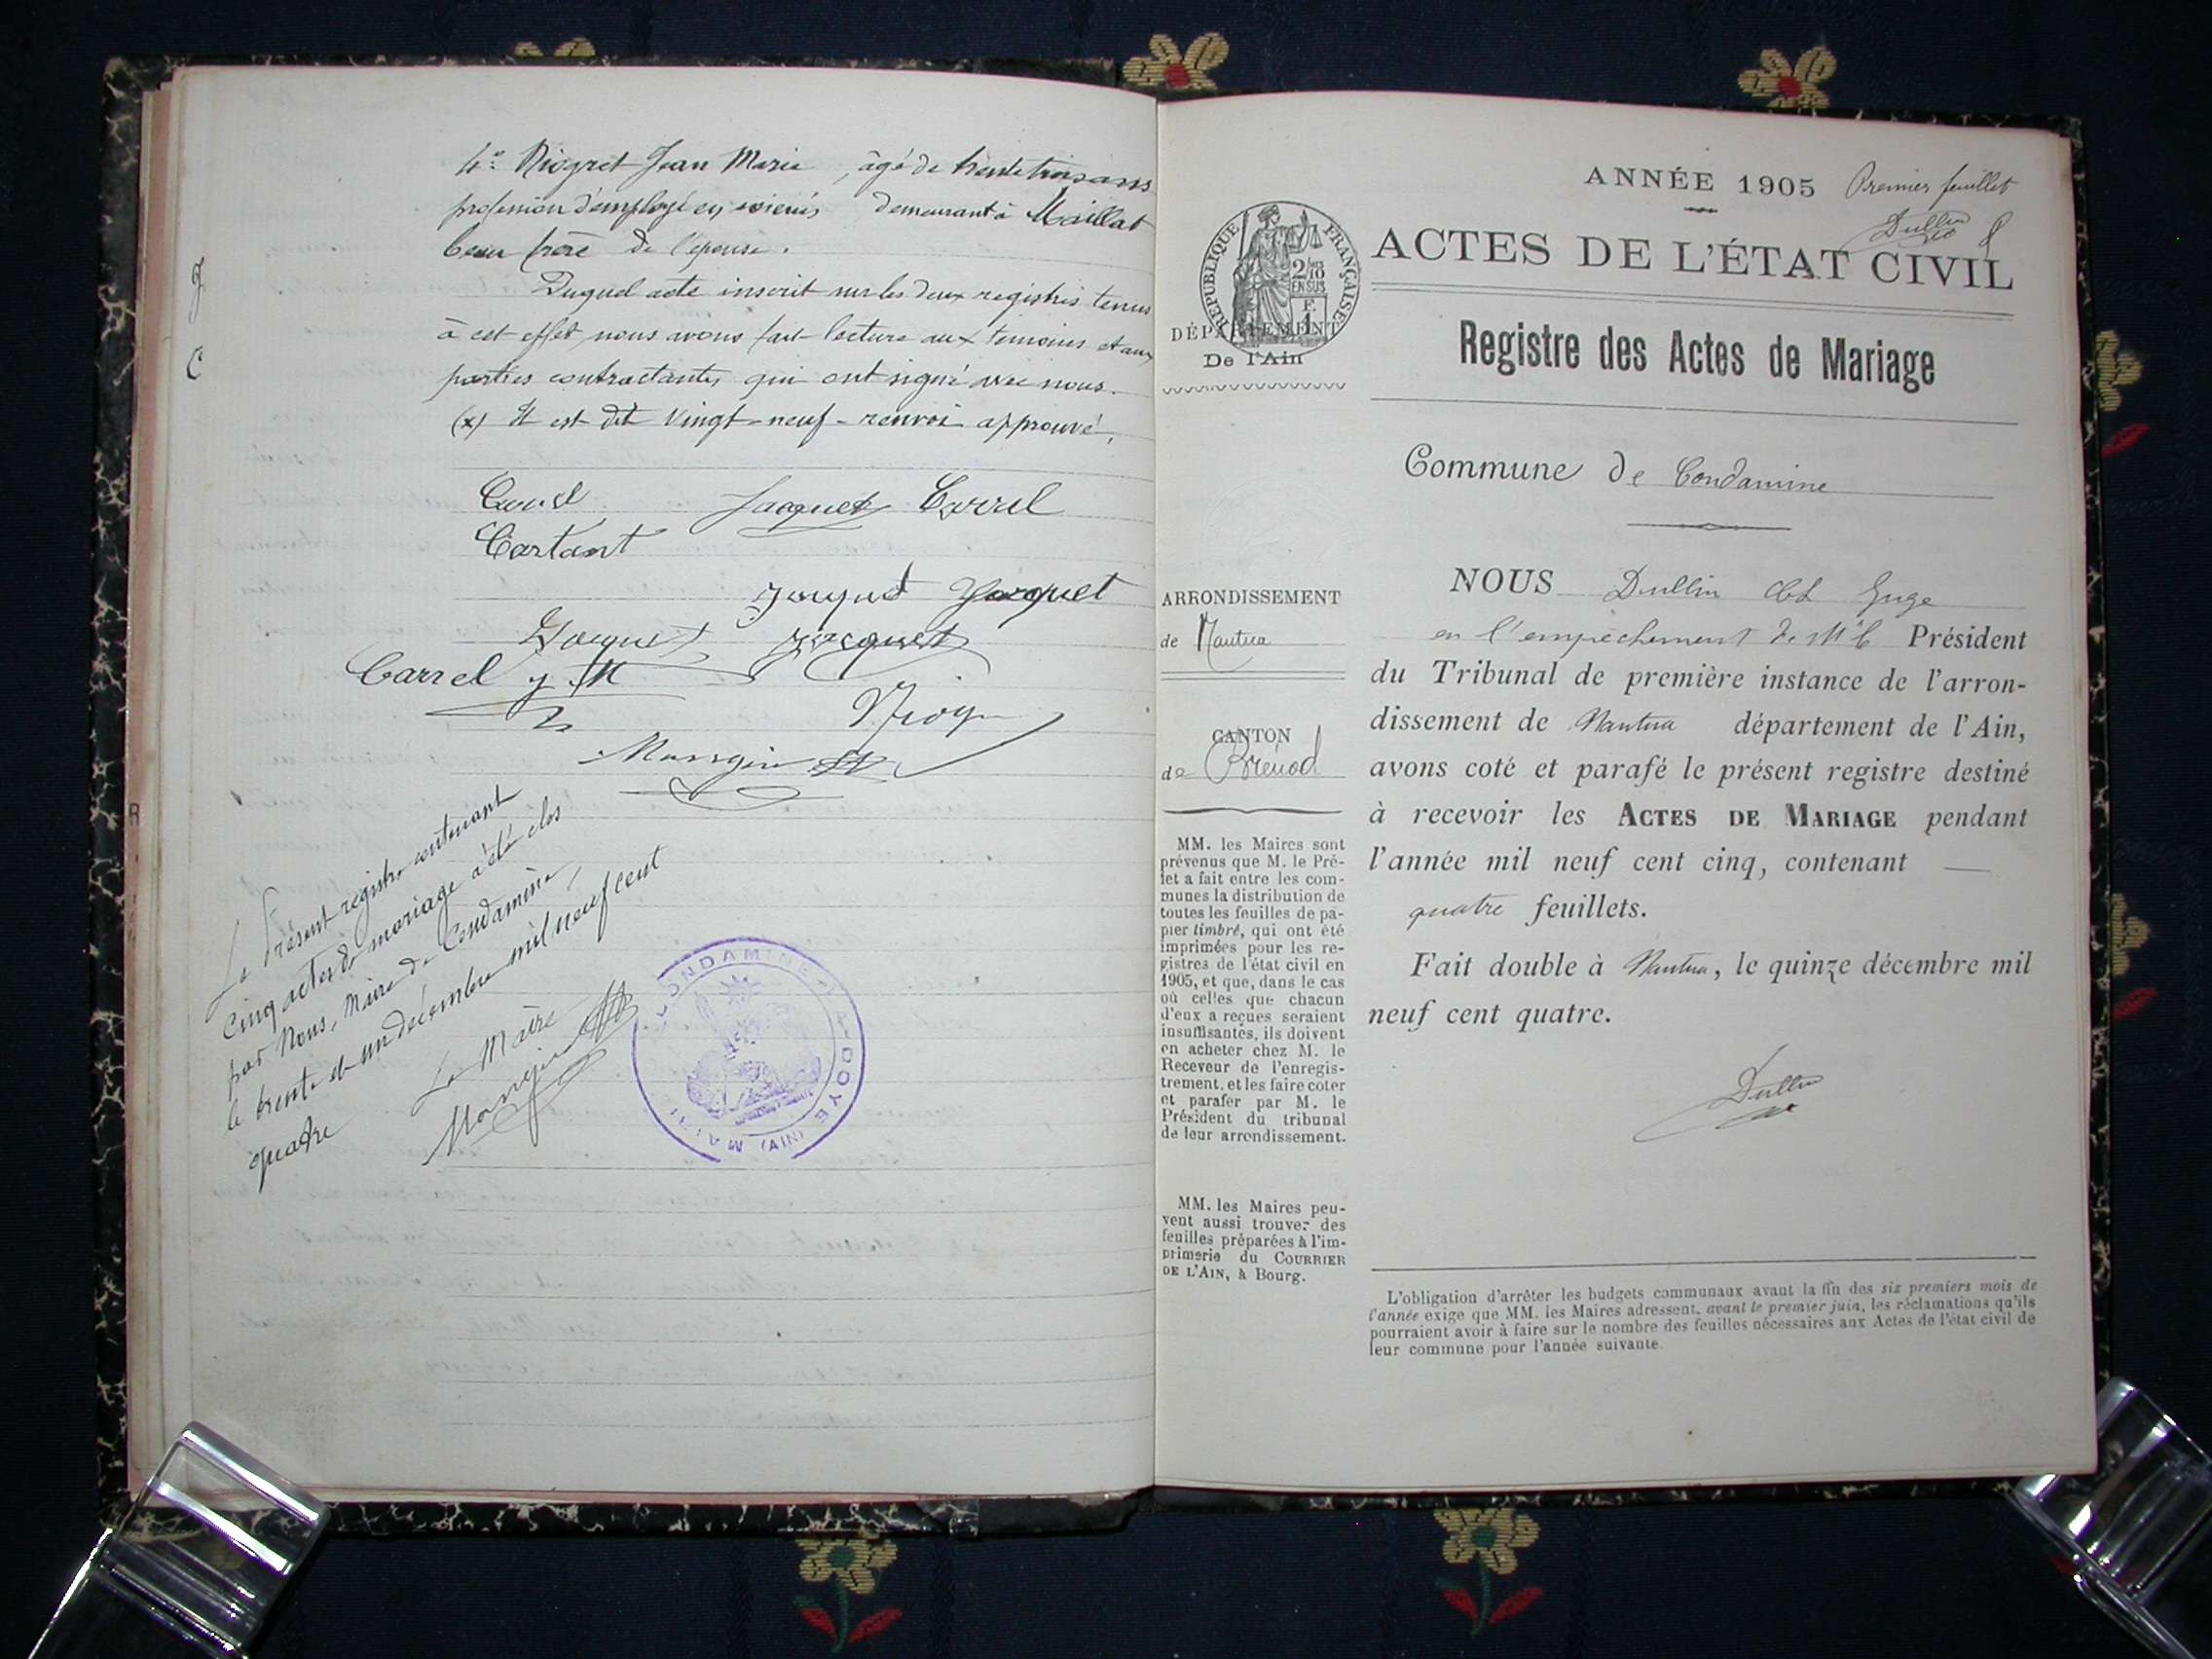 4° Niogret Jean Marie, âgé de trente trois ans
profession d'employé en soieries demeurant à Maillat
beau frère de l'épouse.
Duquel acte inscrit sur les deux registres tenus
à cet effet, nous avons fait lecture aux temoins et aux
parties contractantes qui ont signé avec nous.
(x) Il est dit vingt-neuf - renvoi approuvé.
Jacquet Carrel
Cartant
Jacquet Jacquet
Jacquet Jacquet
Carrel J M
Mangin
Le Présent registre contenant
Cinq actes de mariage a été clos
par Nous, Maire de Condamine,
le trente et un décembre mil neuf cent
quatre
Le Maire
Mangin
CONDAMINE-LA-DOYE (AIN)
MAIRIE
ANNÉE 1905 Premier feuillet
Dullin
RÉPUBLIQUE FRANÇAISE
2/10
EN SUS
F.
1
ACTES DE L'ÉTAT CIVIL
DÉPARTEMENT
De l'Ain
Registre des Actes de Mariage
Commune de Condamine
ARRONDISSEMENT
de Nantua
CANTON
de Brénod
MM. les Maires sont
prévenus que M. le Pré-
fet a fait entre les com-
munes la distribution de
toutes les feuilles de pa-
pier timbré, qui ont été
imprimées pour les re-
gistres de l'état civil en
1905, et que, dans le cas
où celles que chacun
d'eux a reçues seraient
insuffisantes, ils doivent
en acheter chez M. le
Receveur de l'enregis-
trement, et les faire coter
et parafer par M. le
Président du tribunal
de leur arrondissement.
MM. les Maires peu-
vent aussi trouver des
feuilles préparées à l'im-
primerie du COURRIER
DE L'AIN, à Bourg.
NOUS Dullin Juge
en l'empêchement de Mr le Président
du Tribunal de première instance de l'arron-
dissement de Nantua département de l'Ain,
avons coté et parafé le présent registre destiné
à recevoir les ACTES DE MARIAGE pendant
l'année mil neuf cent cinq, contenant —
quatre feuillets.
Fait double à Nantua, le quinze décembre mil
neuf cent quatre.
Dullin
L'obligation d'arrêter les budgets communaux avant la fin des six premiers mois de
l'année exige que MM. les Maires adressent, avant le premier juin, les réclamations qu'ils
pourraient avoir à faire sur le nombre des feuilles nécessaires aux Actes de l'état civil de
leur commune pour l'année suivante.